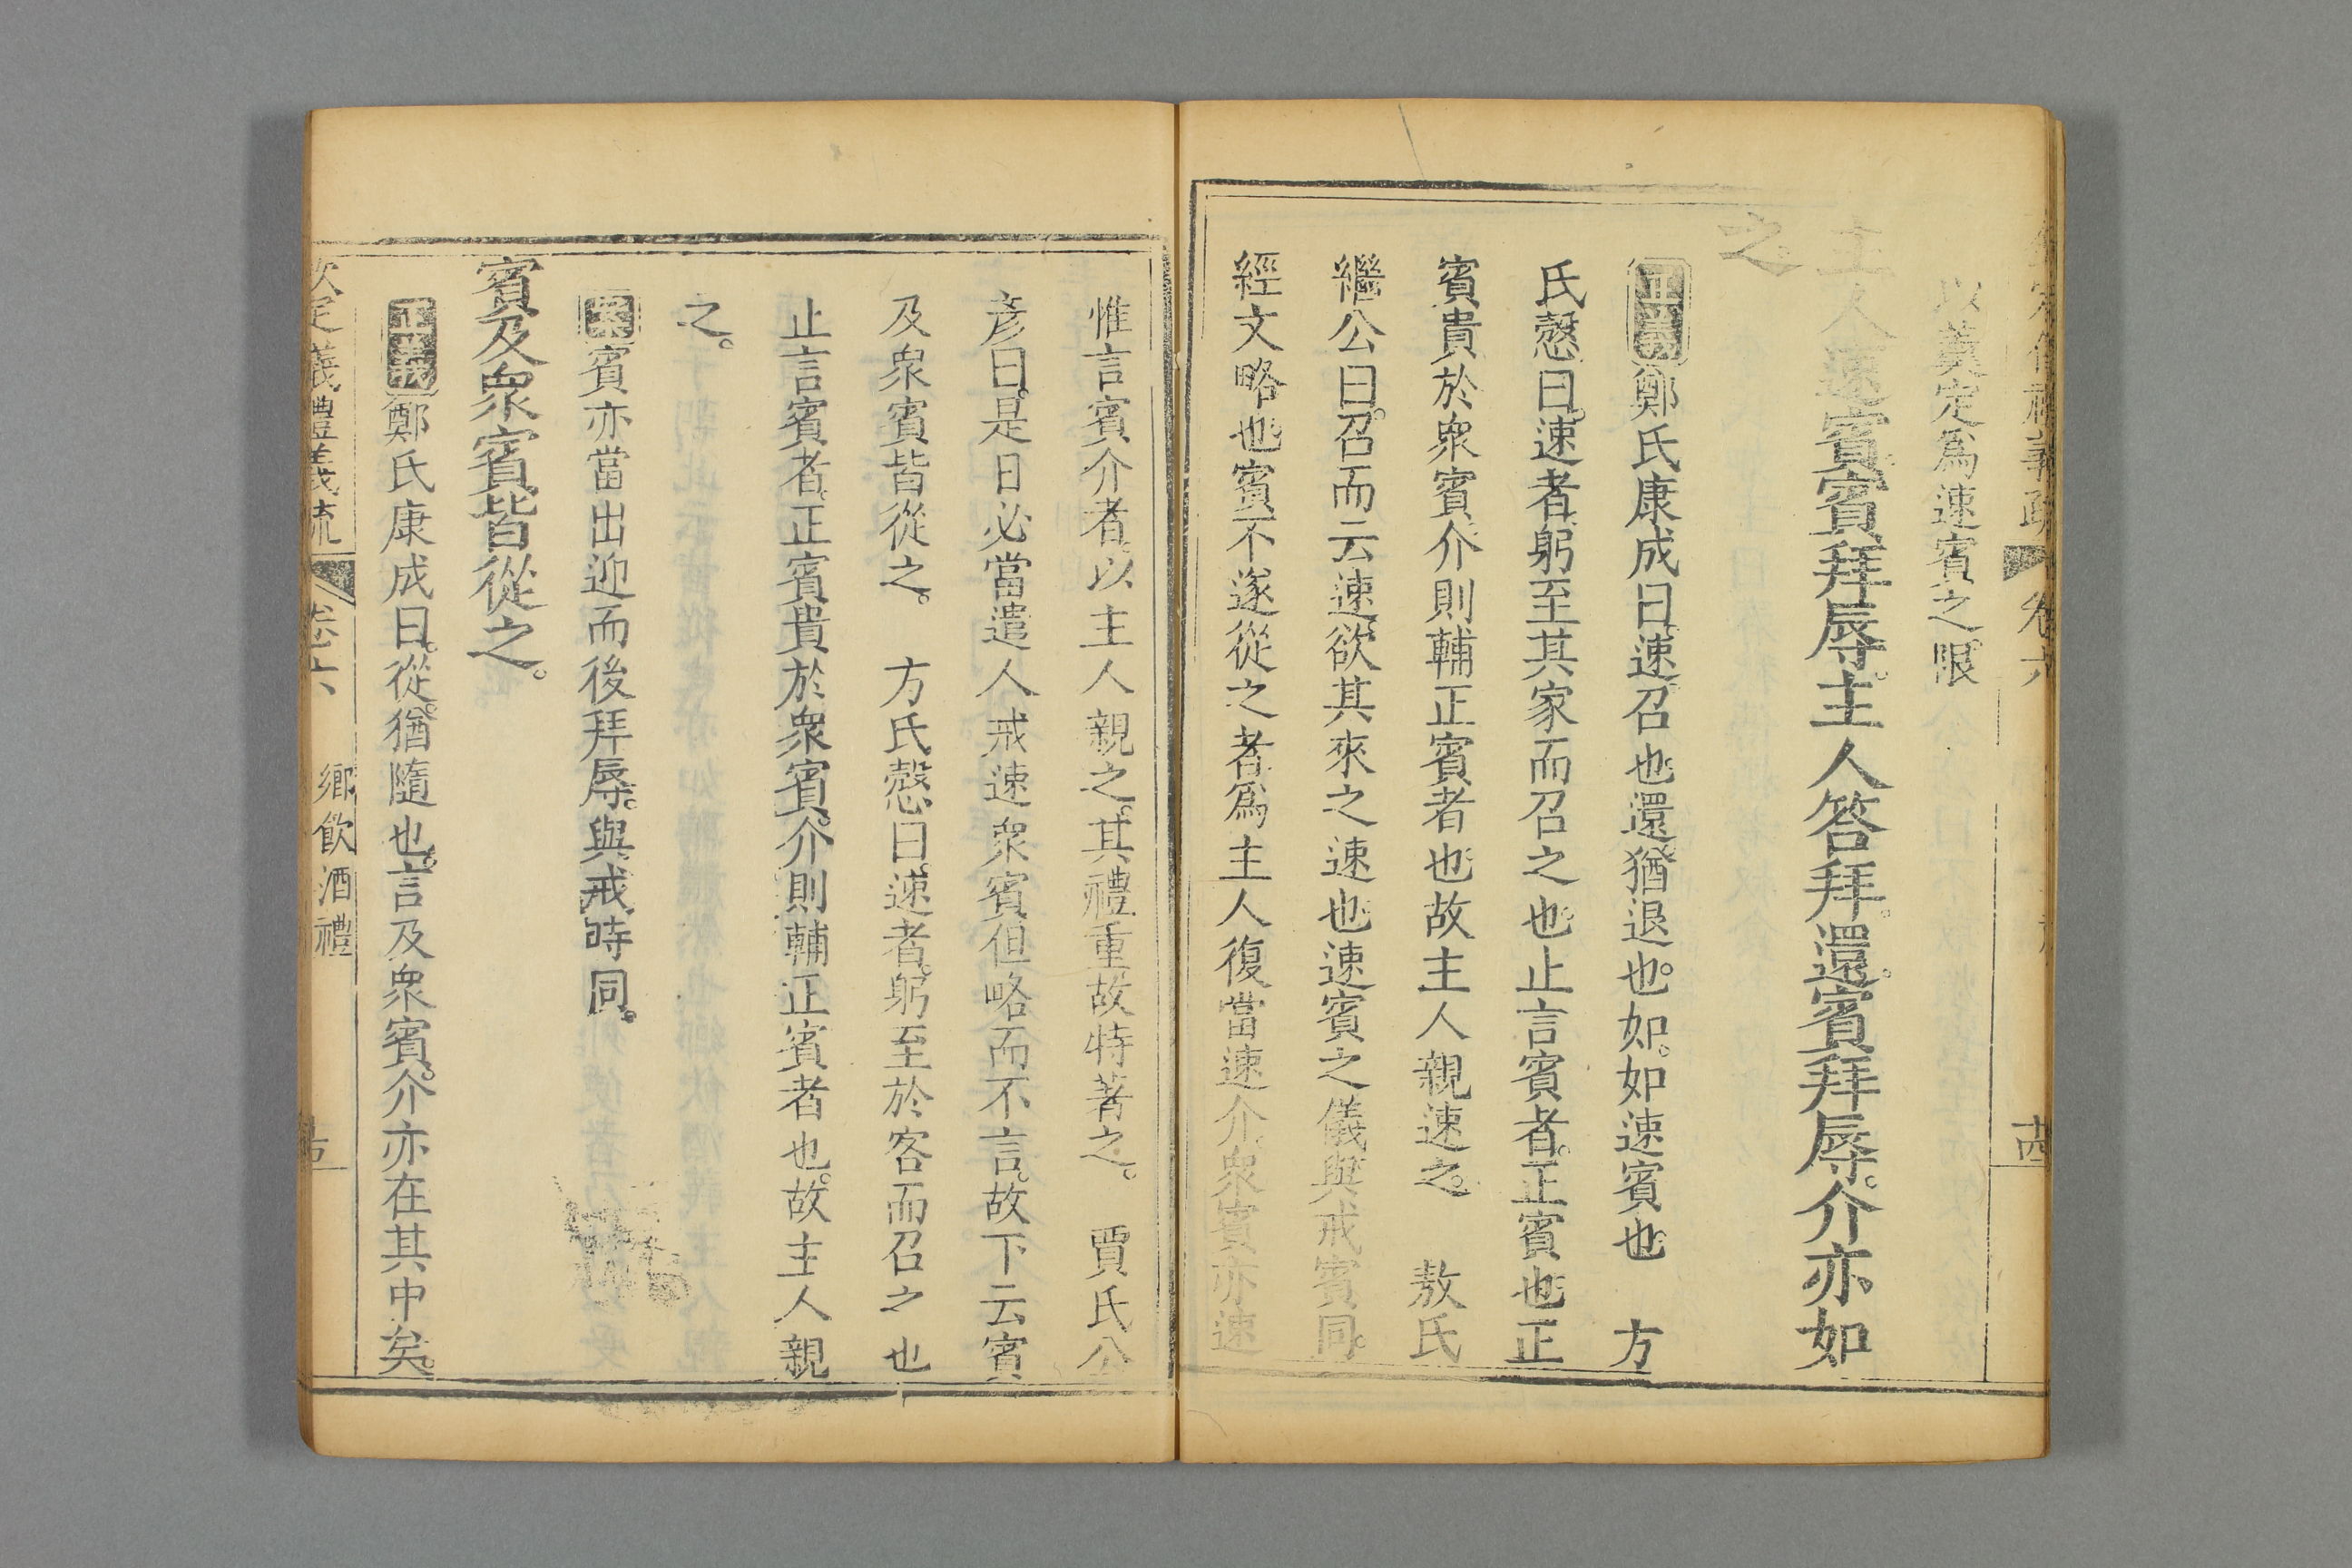 以羹定爲速賓之限
主人速賓賓拜辱主人答拜還賓拜辱介亦如
之
正義鄭氏康成曰速召也還猶退也如如速賓也　方
氏慤曰速者躬至其家而召之也止言賓者正賓也正
賓貴於衆賓介則輔正賓者也故主人親速之　敖氏
繼公曰召而云速欲其來之速也速賓之儀與戒賓同
經文略也賓不遂從之者爲主人復當速介衆賓亦速
惟言賓介者以主人親之其禮重故特著之　賈氏公
彥曰是日必當遣人戒速衆賓但略而不言故下云賓
及衆賓皆從之　方氏慤曰速者躬至於客而召之也
止言賓者正賓貴於衆賓介則輔正賓者也故主人親
之
案賓亦當出迎而後拜辱與戒時同
賓及衆賓皆從之
正義鄭氏康成曰從猶隨也言及衆賓介亦在其中矣
欽定儀禮義疏　卷六　鄉飲酒禮